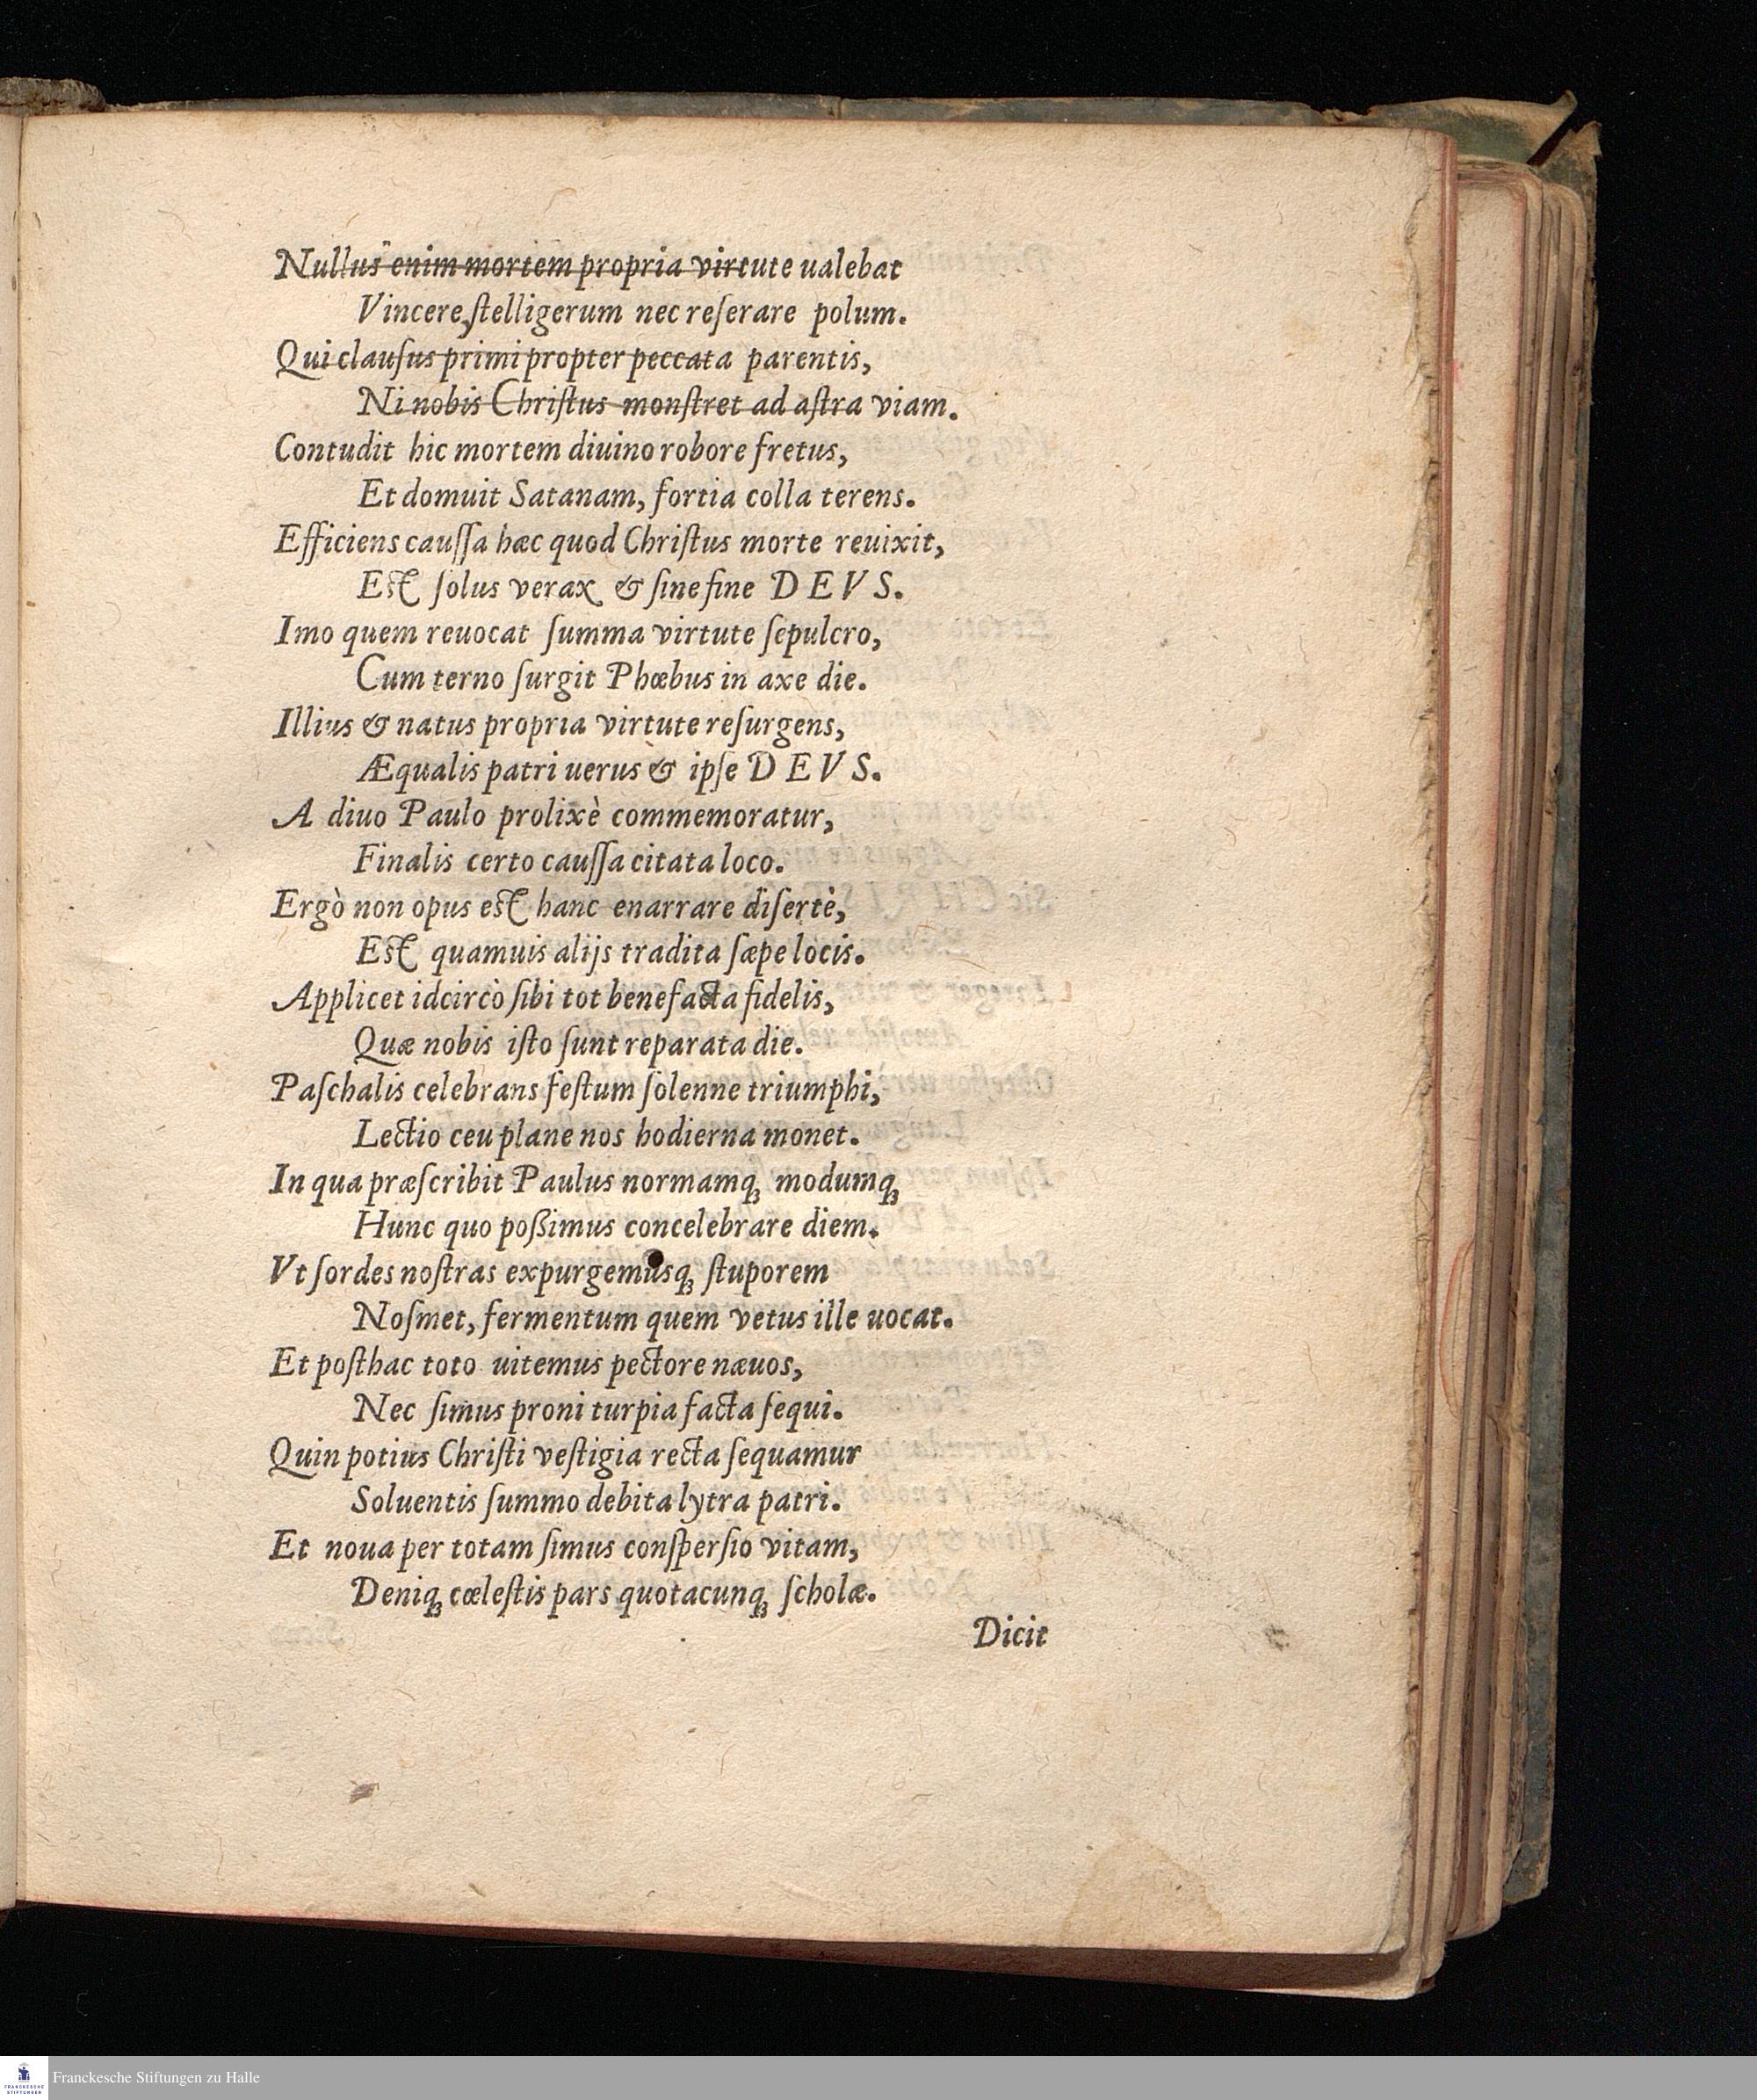 Nullus enim mortem propria virtute ualebat
Vincere, ſtelligerum nec reſerare polum.
Qui clauſus primi propter peccata parentis,
Ni nobis Chriſtus monſtret ad aſtra viam.
Contudit hic mortem diuino robore fretus,
Et domuit Satanam, fortia colla terens.
Efficiens cauſſa hæc quod Chriſtus morte reuixit,
Eſt ſolus verax & ſine fine DEVS.
Imo quem reuocat ſumma virtute ſepulcro,
Cum terno ſurgit Phœbus in axe die.
Illius & natus propria virtute reſurgens,
Æqualis patri uerus & ipſe DEVS.
A diuo Paulo prolixè commemoratur,
Finalis certo cauſſa citata loco.
Ergò non opus eſt hanc enarrare diſertè,
Eſt quamuis alijs tradita ſæpe locis.
Applicet idcircò ſibi tot benefacta fidelis,
Quæ nobis iſto ſunt reparata die.
Paſchalis celebrans feſtum ſolenne triumphi,
Lectio ceu plane nos hodierna monet.
In qua præſcribit Paulus normamq; modumq;
Hunc quo poßimus concelebrare diem.
Vt ſordes noſtras expurgemusq; ſtuporem
Noſmet, fermentum quem vetus ille uocat.
Et poſthac toto uitemus pectore næuos,
Nec ſimus proni turpia facta ſequi.
Quin potius Chriſti veſtigia recta ſequamur
Soluentis ſummo debita lytra patri.
Et noua per totam ſimus conſperſio vitam,
Deniq; cœleſtis pars quotacunq; ſcholæ.
Dicit
FRANCKESCHE
STIFTUNGEN
Franckesche Stiftungen zu Halle